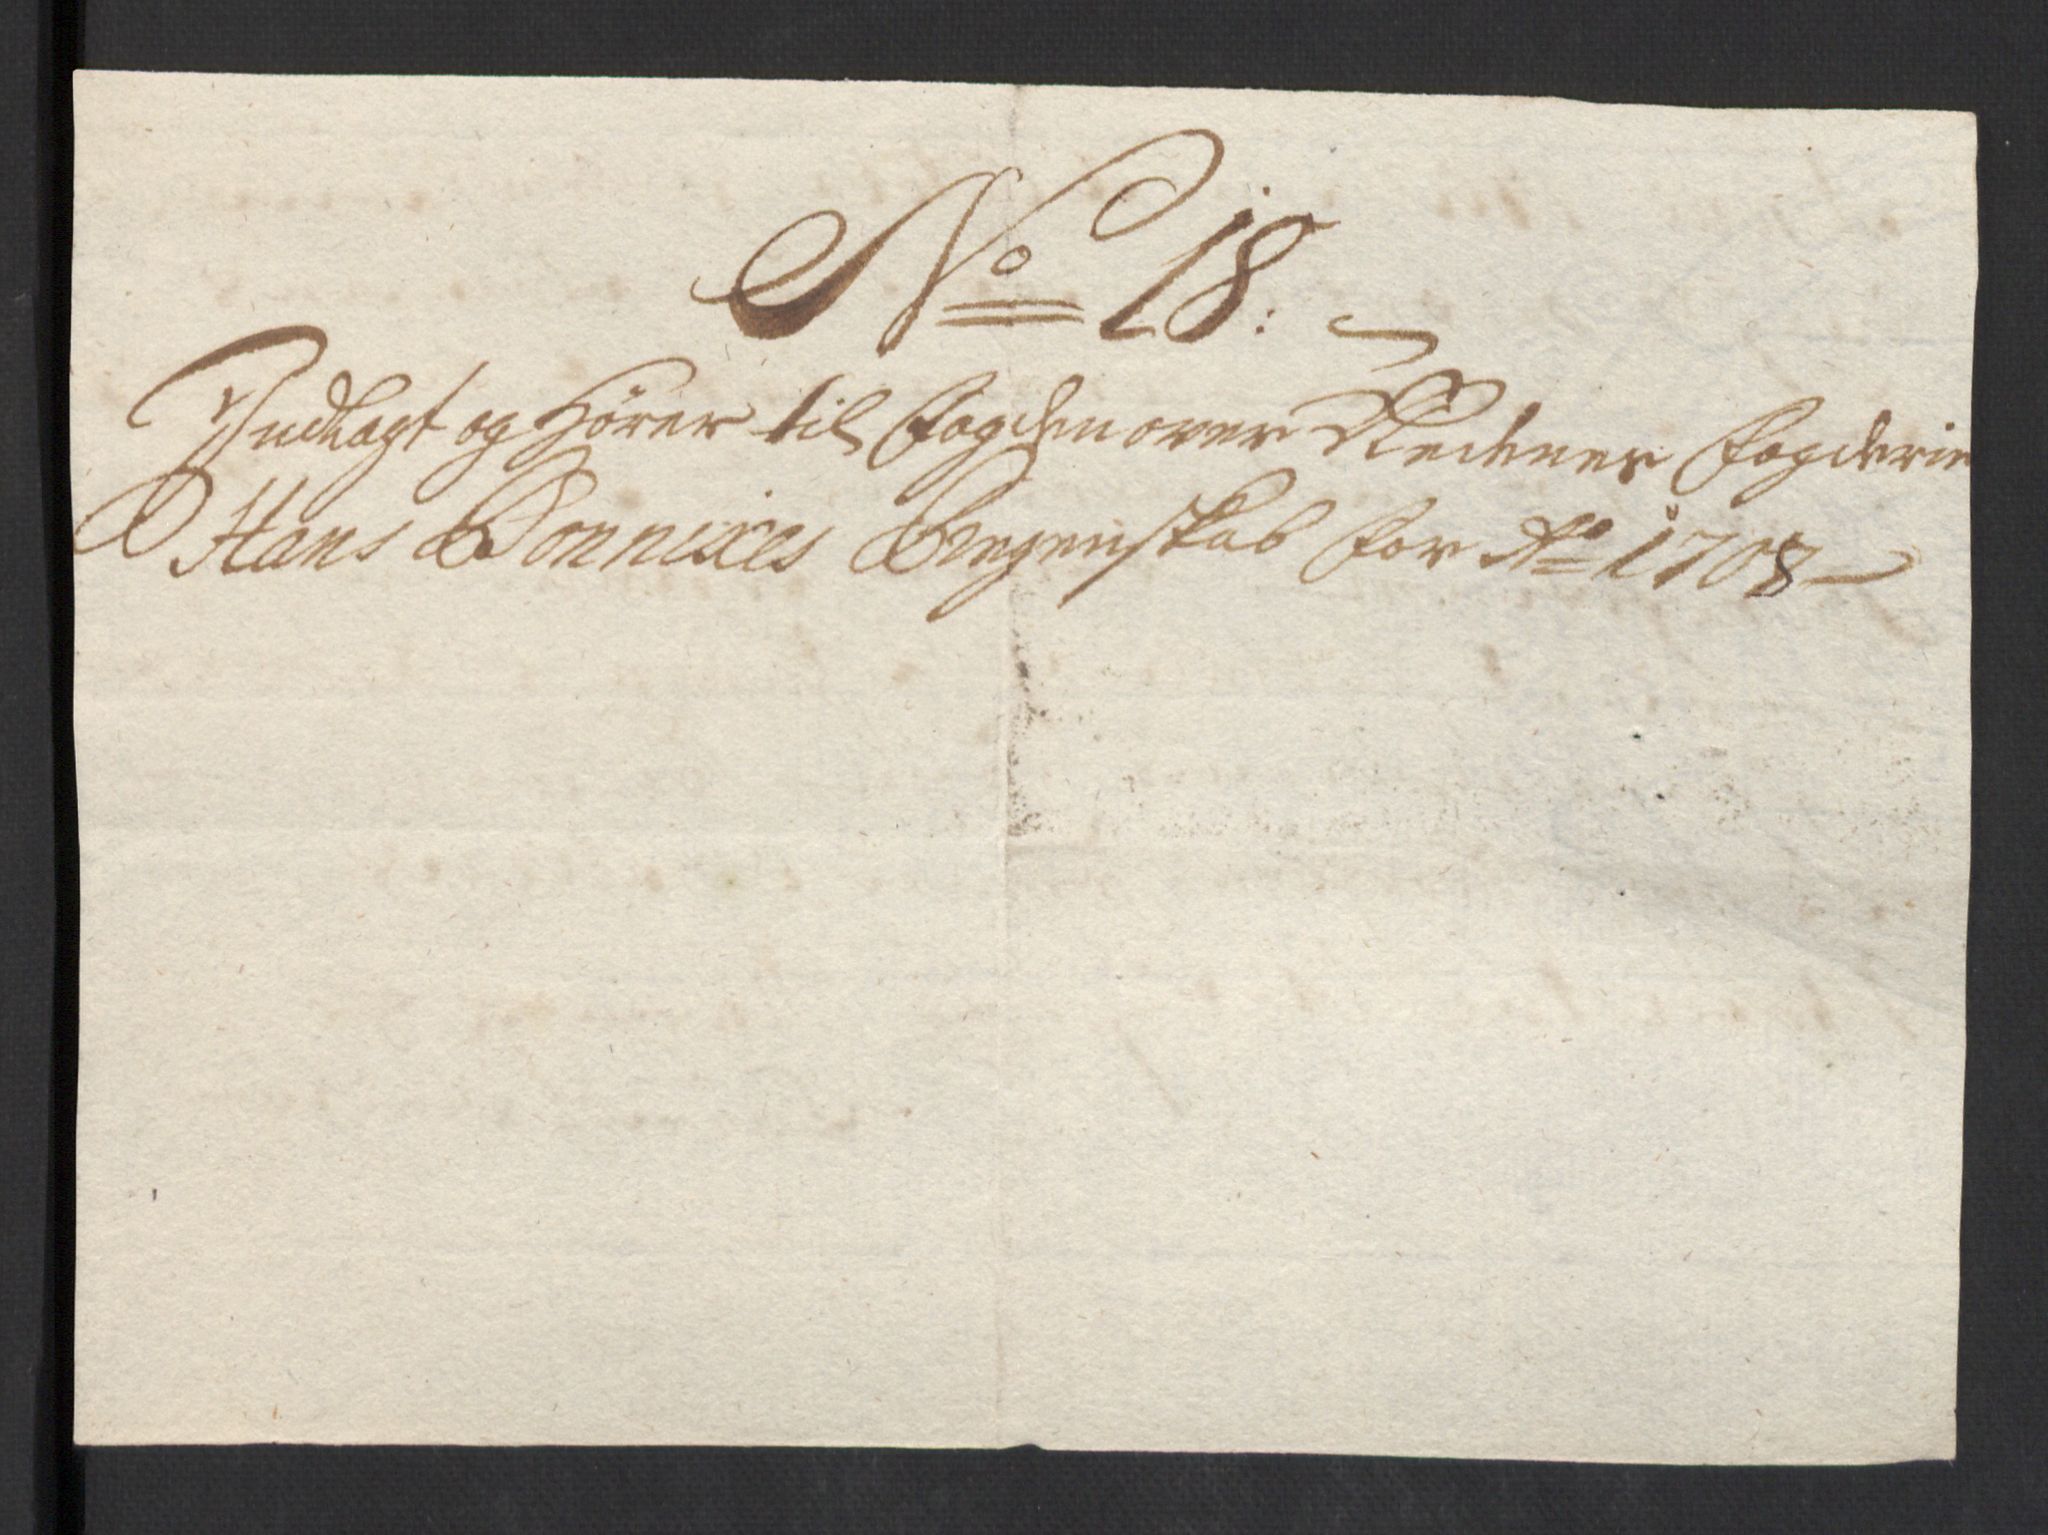 No 18:
Indlagt og Hører til fogden over Nedenes fogderie
Hans Bonnixes Regenskab for Ao 1708